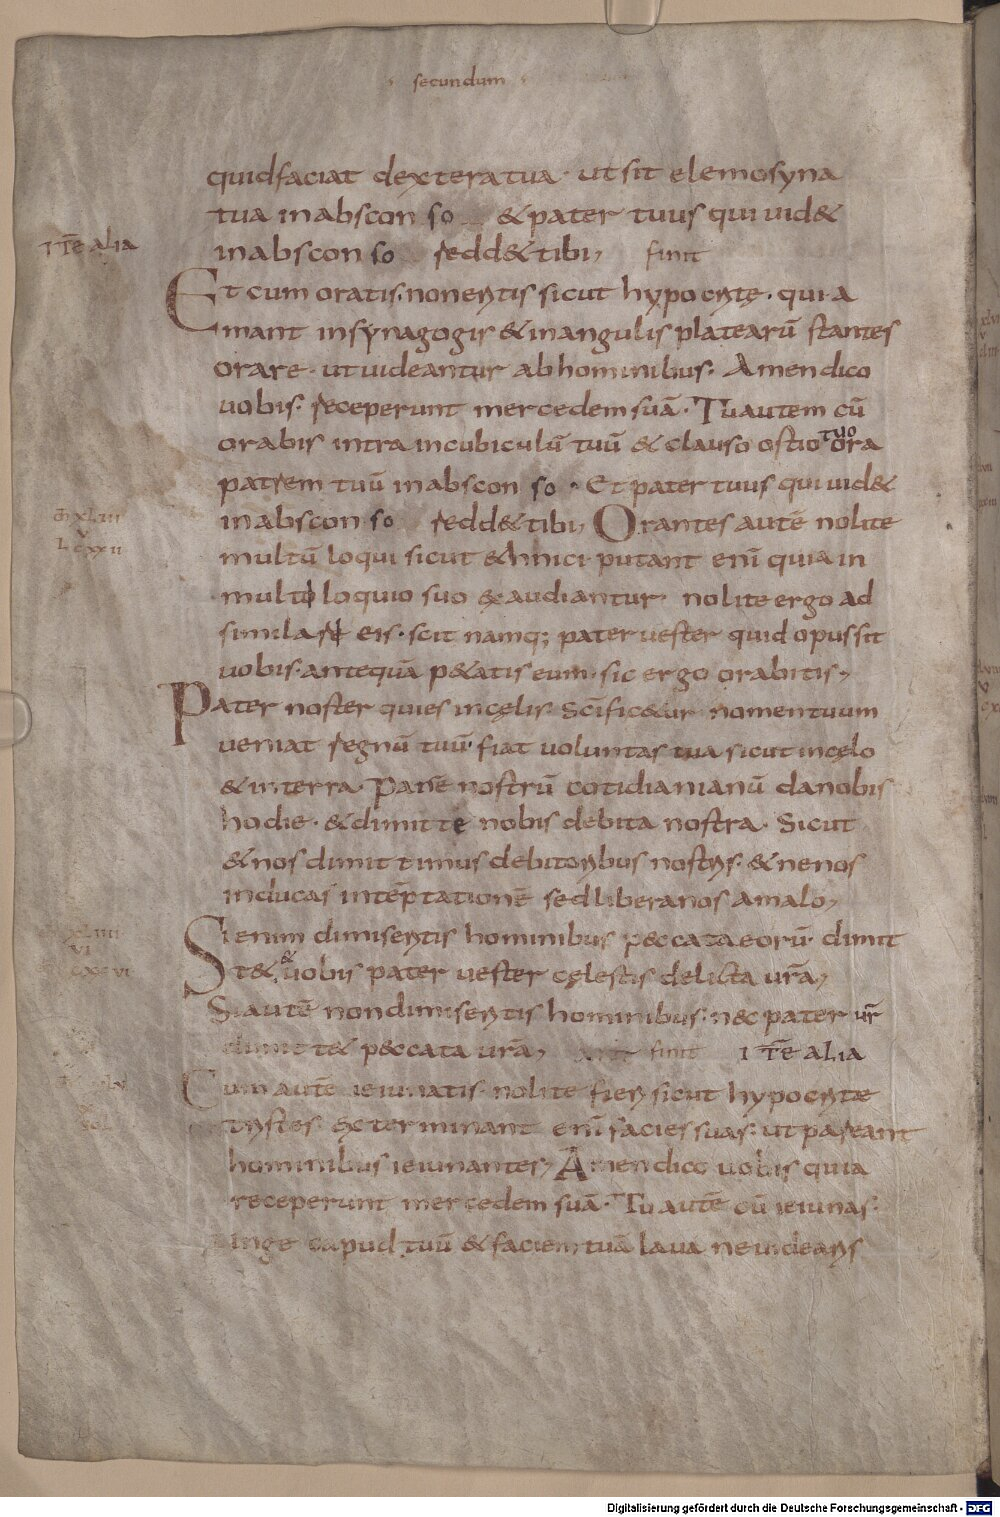 secundum
quid faciat dextera tua · ut sit elemosyna
tua in abscon so & pater tuus qui uid&
ITE alia
in abscon so redd& tibi, finit
Et cum oratis · non eritis sicut hypocritę · qui a
mant in synagogis & in angulis platearū stantes
orare · ut uideantur ab hominibus · Amen dico
uobis · receperunt mercedem suā · Tu autem cū
orabis intra in cubiculū tuū & clauso ostio tuo ora
patrem tuū in abscon so · Et pater tuus qui uid&
in abscon so redd& tibi, Orantes autē nolite
multū loqui sicut &hnici putant enī quia in
multo loquio suo exaudiantur · nolite ergo ad
simila eis · scit namq; pater uester quid opus sit
uobis · antequā p&atis eum · sic ergo orabitis,
Pater noster qui es in cęlis scīfic&ur nomen tuum
veniat regnū tuū · fiat uoluntas tua sicut in cęlo
& in terra · Panē nostrū cotidianū da nobis
hodie · & dimitte nobis debita nostra · Sicut
& nos dimittimus debitoribus nostris · & ne nos
inducas in tēptationē sed libera nos a malo,
Si enim dimiseritis hominibus peccata eorū · dimit
t& & uobis pater uester cęlestis delicta urā,
Si autē non dimiseritis hominibus : nec pater ur
dimitt& peccata urā, finit ITE alia
Cum autē ieiunatis · nolite fieri sicut hypocritæ
tristes · Exterminant enī facies suas : ut pareant
hominibus ieiunantes, Amen dico uobis quia
receperunt mercedem suā · Tu autē cū ieiunas ·
unge capud tuū & faciem tuā laua ne uidearis
XLIII
V
LCXXII
XLIIII
VI
CXXVI
XLV
X
SOL
Digitalisierung gefördert durch die Deutsche Forschungsgemeinschaft - DFG